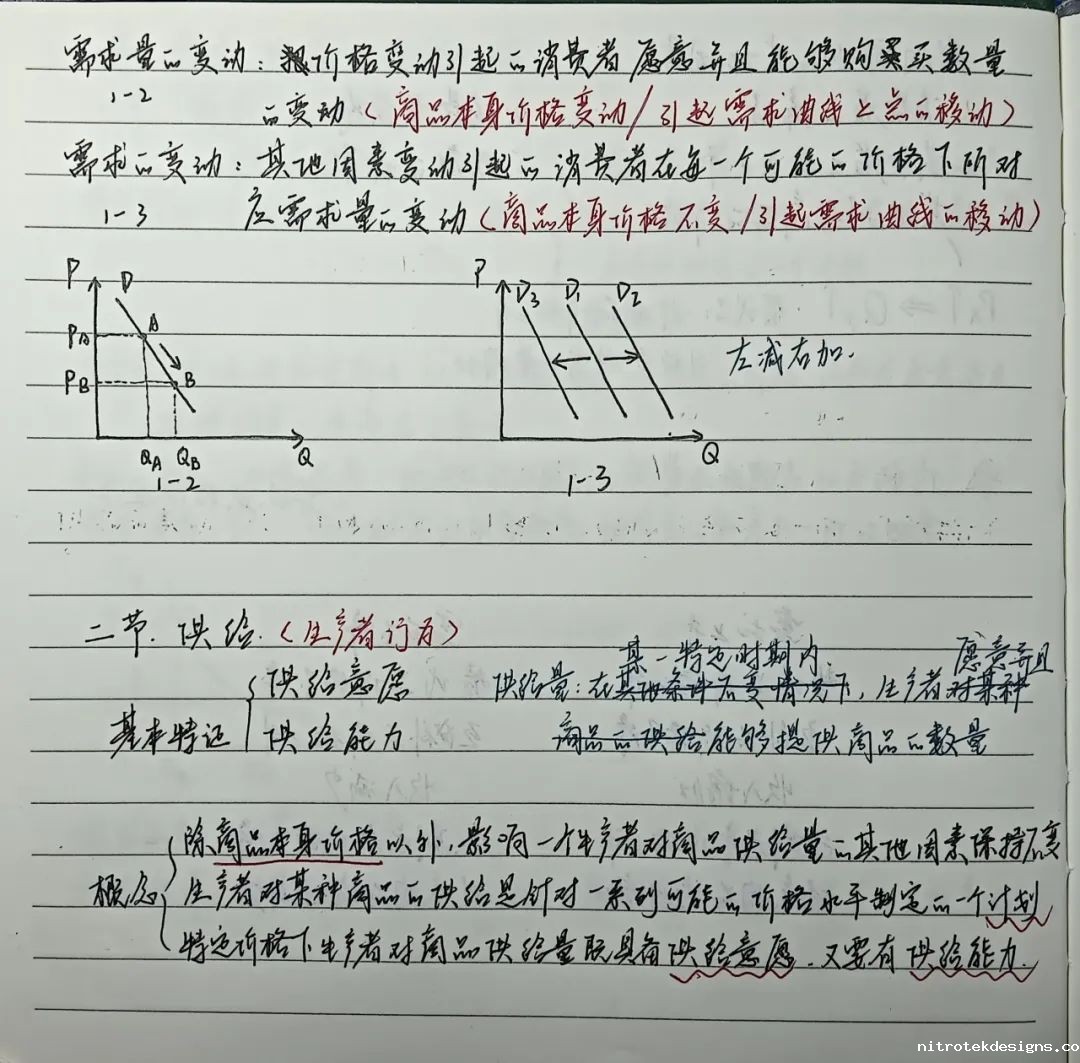 需求量的变动：价格变动引起的消费者愿意并且能够购买数量
1-2 的变动（商品本身价格变动/引起需求曲线上点的移动）
需求的变动：其他因素变动引起的消费者在每一个可能的价格下所对
1-3 应需求量的变动（商品本身价格不变/引起需求曲线的移动）
P D P D3 D1 D2
PA A
PB B 左减右加.
QA QB Q Q
1-2 1-3
二节.供给.（生产者行为）
某一特定时期内. 愿意并且
供给意愿 供给量：在其他条件不变情况下，生产者对某种
基本特征
供给能力 商品的供给能够提供商品的数量
除商品本身价格以外，影响一个生产者对商品供给量的其他因素保持不变
概念 生产者对某种商品的供给是针对一系列可能的价格水平制定的一个计划
特定价格下生产者对商品供给量既具备供给意愿.又要有供给能力.
nitrotekdesigns.co